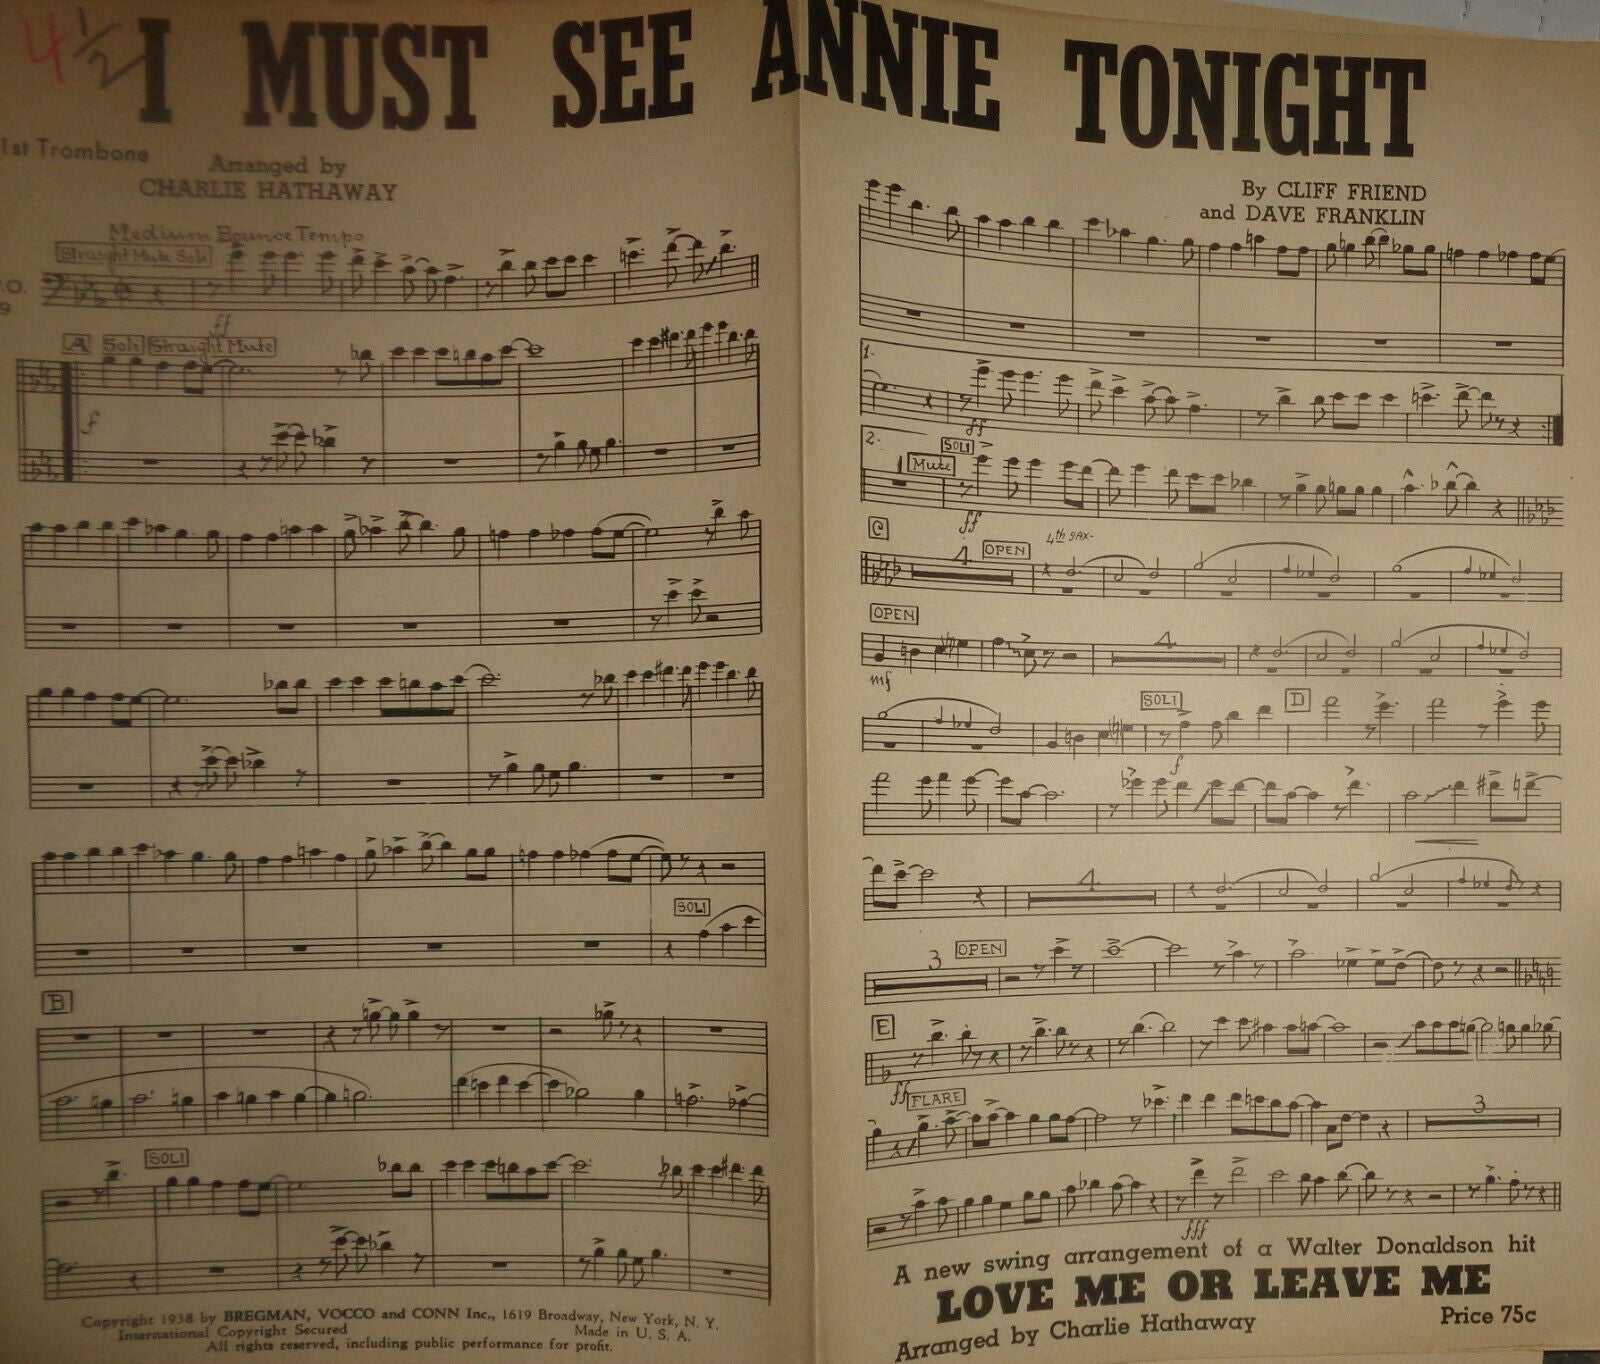 4 1/2
I MUST SEE ANNIE TONIGHT
1st Trombone
Arranged by
CHARLIE HATHAWAY
By CLIFF FRIEND
and DAVE FRANKLIN
Medium Bounce Tempo
Straight Mute Soli
.O.
9
ff
A Soli Straight Mute
f
SOLI
B
SOLI
Copyright 1938 by BREGMAN, VOCCO and CONN Inc., 1619 Broadway, New York, N. Y.
International Copyright Secured
Made in U. S. A.
All rights reserved, including public performance for profit.
1.
ff
2.
1 Mute SOLI
ff
C
4 OPEN 4th SAX.
OPEN
4
mf
SOLI D
f
4
3 OPEN
E
ff
FLARE
3
fff
A new swing arrangement of a Walter Donaldson hit
LOVE ME OR LEAVE ME
Arranged by Charlie Hathaway
Price 75c